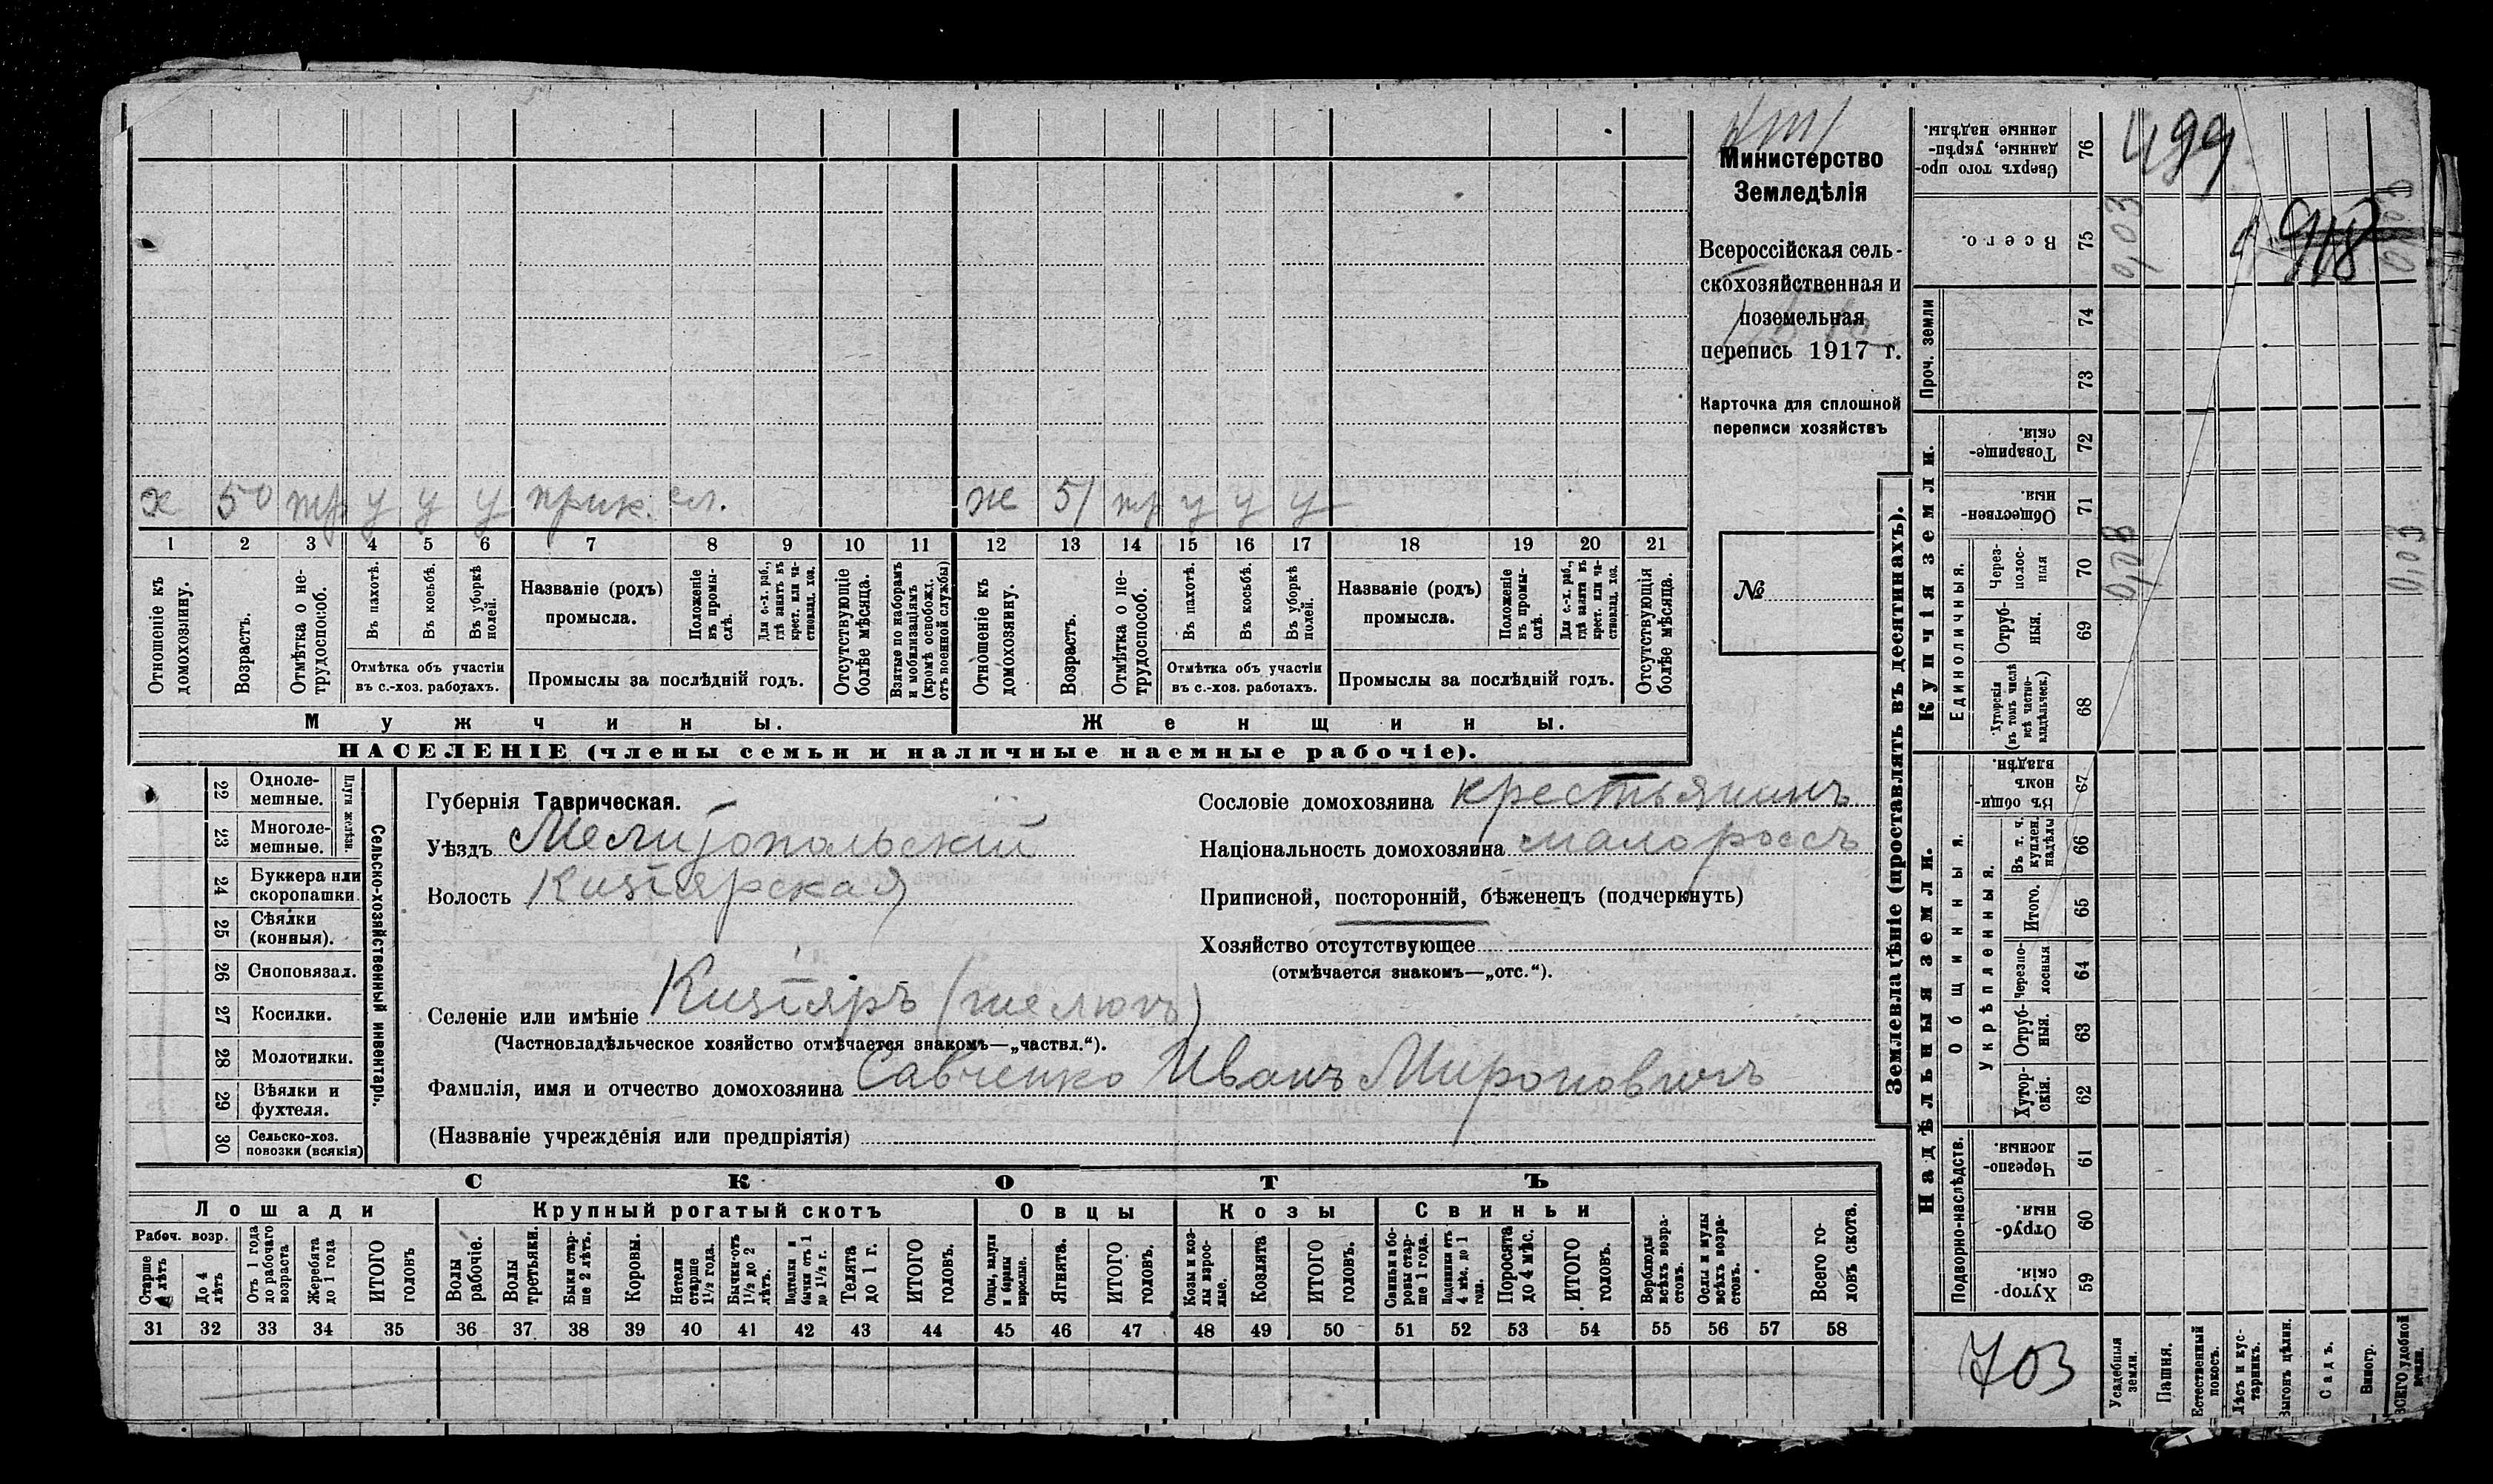 х 50 тр у у у прик. сл. ж 51 тр у у у
1 2 3 4 5 6 7 8 9 10 11 12 13 14 15 16 17 18 19 20 21
Отношеніе къ домохозяину.
Возрастъ.
Отмѣтка о нетрудоспособ.
Въ пахотѣ.
Въ косьбѣ.
Въ уборкѣ полей.
Отмѣтка объ участіи
въ с.-хоз. работахъ.
Названіе (родъ)
промысла.
Положеніе въ промыслѣ.
Для с.-х. раб., гдѣ занятъ въ крест. или частновлад. хоз.
Промыслы за послѣдній годъ.
Отсутствующіе болѣе мѣсяца.
Взятые по наборамъ и мобилизаціямъ (кромѣ освобожд. отъ военной службы)
Отношеніе къ домохозяину.
Возрастъ.
Отмѣтка о нетрудоспособ.
Въ пахотѣ.
Въ косьбѣ.
Въ уборкѣ полей.
Отмѣтка объ участіи
въ с.-хоз. работахъ.
Названіе (родъ)
промысла.
Положеніе въ промыслѣ.
Для с.-х. раб., гдѣ занята въ крест. или частновлад. хоз.
Промыслы за послѣдній годъ.
Отсутствующія болѣе мѣсяца.
Мужчины. Женщины.
НАСЕЛЕНІЕ (члены семьи и наличные наемные рабочіе).
Министерство
Земледѣлія
Всероссійская сель-
скохозяйственная и
поземельная
перепись 1917 г.
Карточка для сплошной
переписи хозяйствъ
№
22 Одноле-
мешные.
23 Многоле-
мешные.
Плуги желѣзн.
24 Буккера или
скоропашки.
25 Сѣялки
(конныя).
26 Сноповязал.
27 Косилки.
28 Молотилки.
29 Вѣялки и
фухтеля.
30 Сельско-хоз.
повозки (всякія)
Сельско-хозяйственный инвентарь.
Губернія Таврическая.
Уѣздъ Мелитопольскій
Волость Кизіярская
Селеніе или имѣніе Кизіяръ
(Частновладѣльческое хозяйство отмѣчается знакомъ—„частвл.“).
Фамилія, имя и отчество домохозяина Савченко Иванъ Мироновичъ
(Названіе учрежденія или предпріятія)
Сословіе домохозяина крестьянинъ
Національность домохозяина малороссъ
Приписной, посторонній, бѣженецъ (подчеркнуть)
Хозяйство отсутствующее
(отмѣчается знакомъ—„отс.“).
СКОТЪ
Лошади Крупный рогатый скотъ Овцы Козы Свиньи
Рабоч. возр.
Старше 4 лѣтъ
До 4 лѣтъ
Отъ 1 года до рабочаго возраста
Жеребята до 1 года
ИТОГО головъ
Волы рабочіе.
Волы третьяки.
Быки старше 2 лѣтъ.
Коровы.
Нетели старше 1½ года.
Бычки отъ 1½ до 2 лѣтъ.
Подтелки и бычки отъ 1 до 1½ г.
Телята до 1 г.
ИТОГО головъ.
Овцы, валухи и бараны взрослые.
Ягнята.
ИТОГО головъ.
Козы и козлы взрослые.
Козлята
ИТОГО головъ.
Свиньи и боровы старше 1 года.
Подсвинки отъ 4 мѣс. до 1 года.
Поросята до 4 мѣс.
ИТОГО головъ.
Верблюды всѣхъ возрастовъ.
Ослы и мулы всѣхъ возрастовъ.
Всего головъ скота.
31 32 33 34 35 36 37 38 39 40 41 42 43 44 45 46 47 48 49 50 51 52 53 54 55 56 57 58
Землевладѣніе (проставлять въ десятинахъ).
Купчія земли.
Проч. земли
Единоличныя.
Сверхъ того проданные, укрѣпленные надѣлы. 76 499
Всего. 75 0,03 918 0,03
74
73
Товарищескія. 72
Общественныя. 71
Черезполосныя 70 0,03 0,03
Отрубныя. 69
Хуторскія (въ томъ числѣ всѣ частновладѣльческ.) 68
Надѣльныя земли.
Общинныя.
Въ общинномъ владѣн. 67
Укрѣпленныя.
Въ т. ч. куплен. надѣлы 66
Итого. 65
Черезполосныя 64
Отрубныя. 63
Хуторскія. 62
Подворно-наслѣдств.
Черезполосныя. 61
Отрубныя. 60
Хуторскія. 59
703
Усадебныя земли.
Пашня.
Естественный покосъ.
Лѣсъ и кустарникъ.
Выгонъ цѣлин.
Садъ.
Виногр.
ВСЕГО удобной земли.